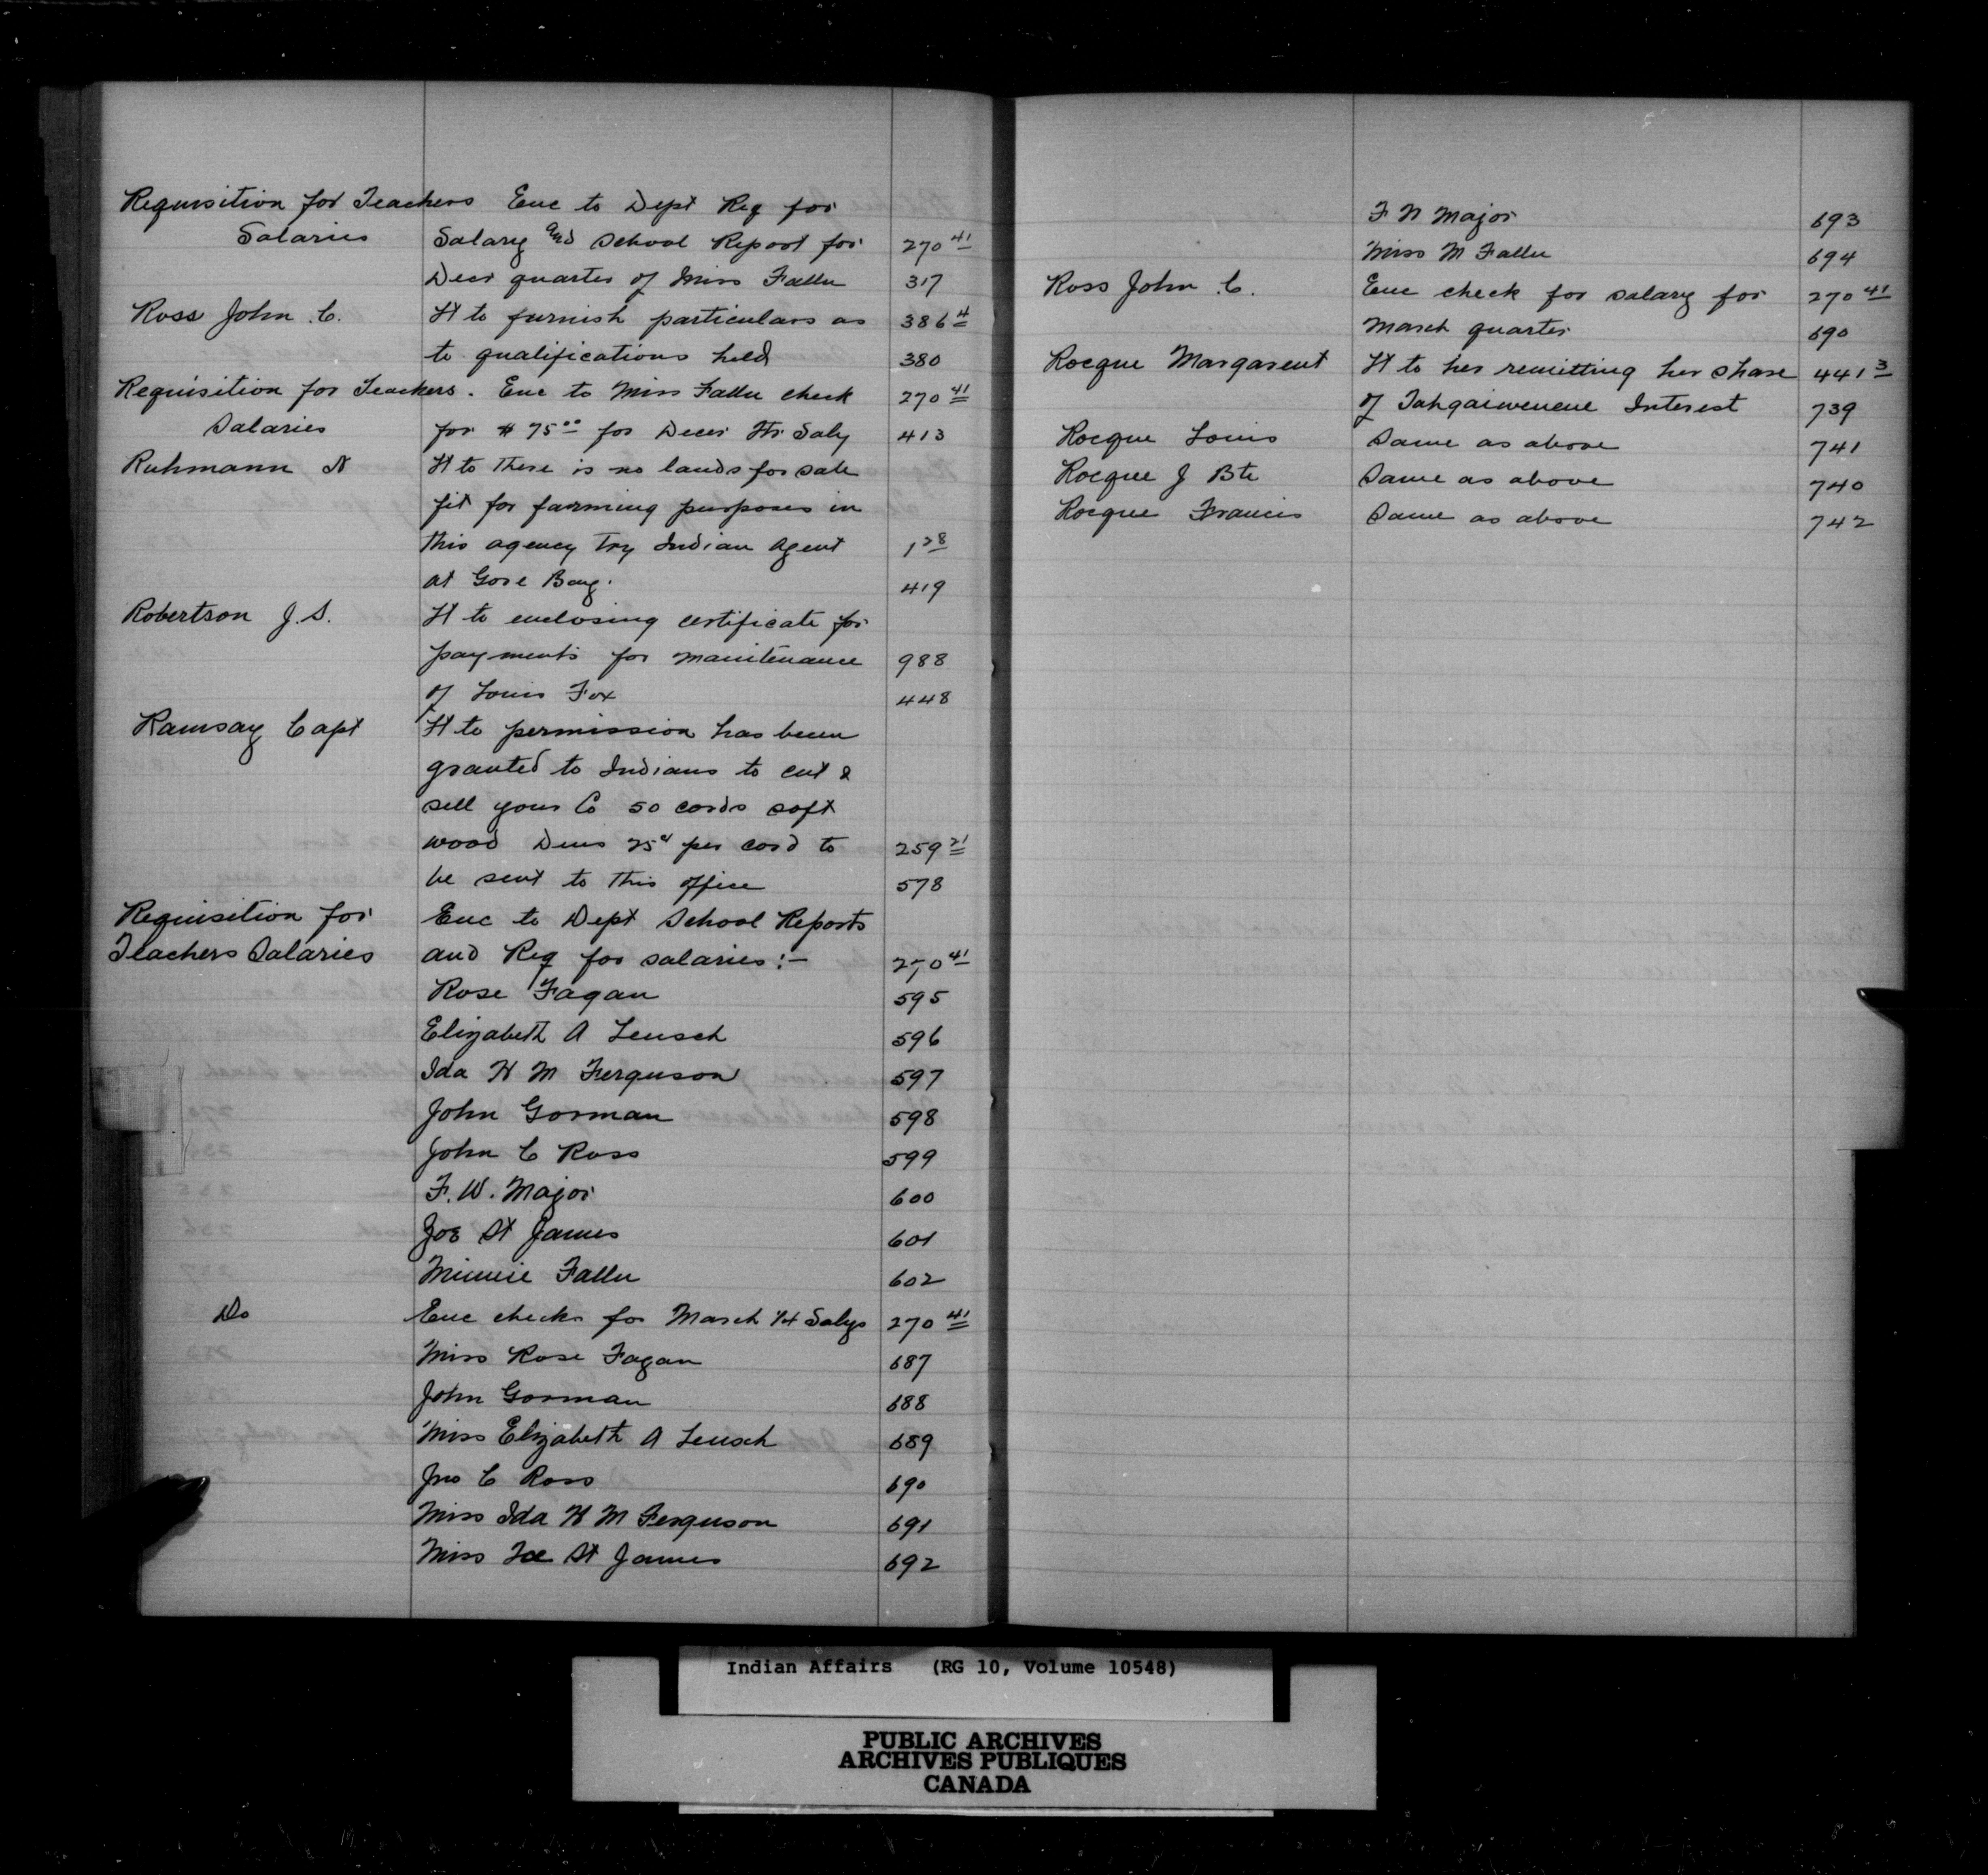 Requisition for Teachers Enc to Dept Req for
Salaries Salary and School Report for 270 41
Decr quarter of Miss Fallu 317
Ross John C. Lt to furnish particulars as 386 4
to qualifications held 380
Requisition for Teachers. Enc to Miss Fallu check 270 41
Salaries for $75 00 for Decr Qtr Saly 413
Ruhmann N Lt to There is no lands for sale
fit for farming purposes in
this agency try Indian Agent 1 28
at Gore Bay. 419
Robertson J.S. Lt to enclosing certificate for
payments for maintenance 988
of Louis Fox 448
Ramsay Capt Lt to permission has been
granted to Indians to cut &
sell your Co 50 cords soft
wood Dues 25c per cord to 259 21
be sent to this office 578
Requisition for Enc to Dept School Reports
Teachers Salaries and Req for salaries:- 270 41
Rose Fagan 595
Elizabeth A Leusch 596
Ida H M Ferguson 597
John Gorman 598
John C Ross 599
F. W. Major 600
Zoe St James 601
Minnie Fallu 602
Do Enc checks for March 1/4 Salys 270 41
Miss Rose Fagan 687
John Gorman 688
Miss Elizabeth A Leusch 689
Jno C Ross 690
Miss Ida H M Ferguson 691
Miss Zoe St James 692
F W Major 693
Miss M Fallu 694
Ross John C. Enc check for salary for 270 41
March quarter 690
Rocque Margareut Lt to her remitting her share 441 3
of Interest 739
Rocque Louis Same as above 741
Rocque J Bte Same as above 740
Rocque Francis Same as above 742
Indian Affairs (RG 10, Volume 10548)
PUBLIC ARCHIVES
ARCHIVES PUBLIQUES
CANADA